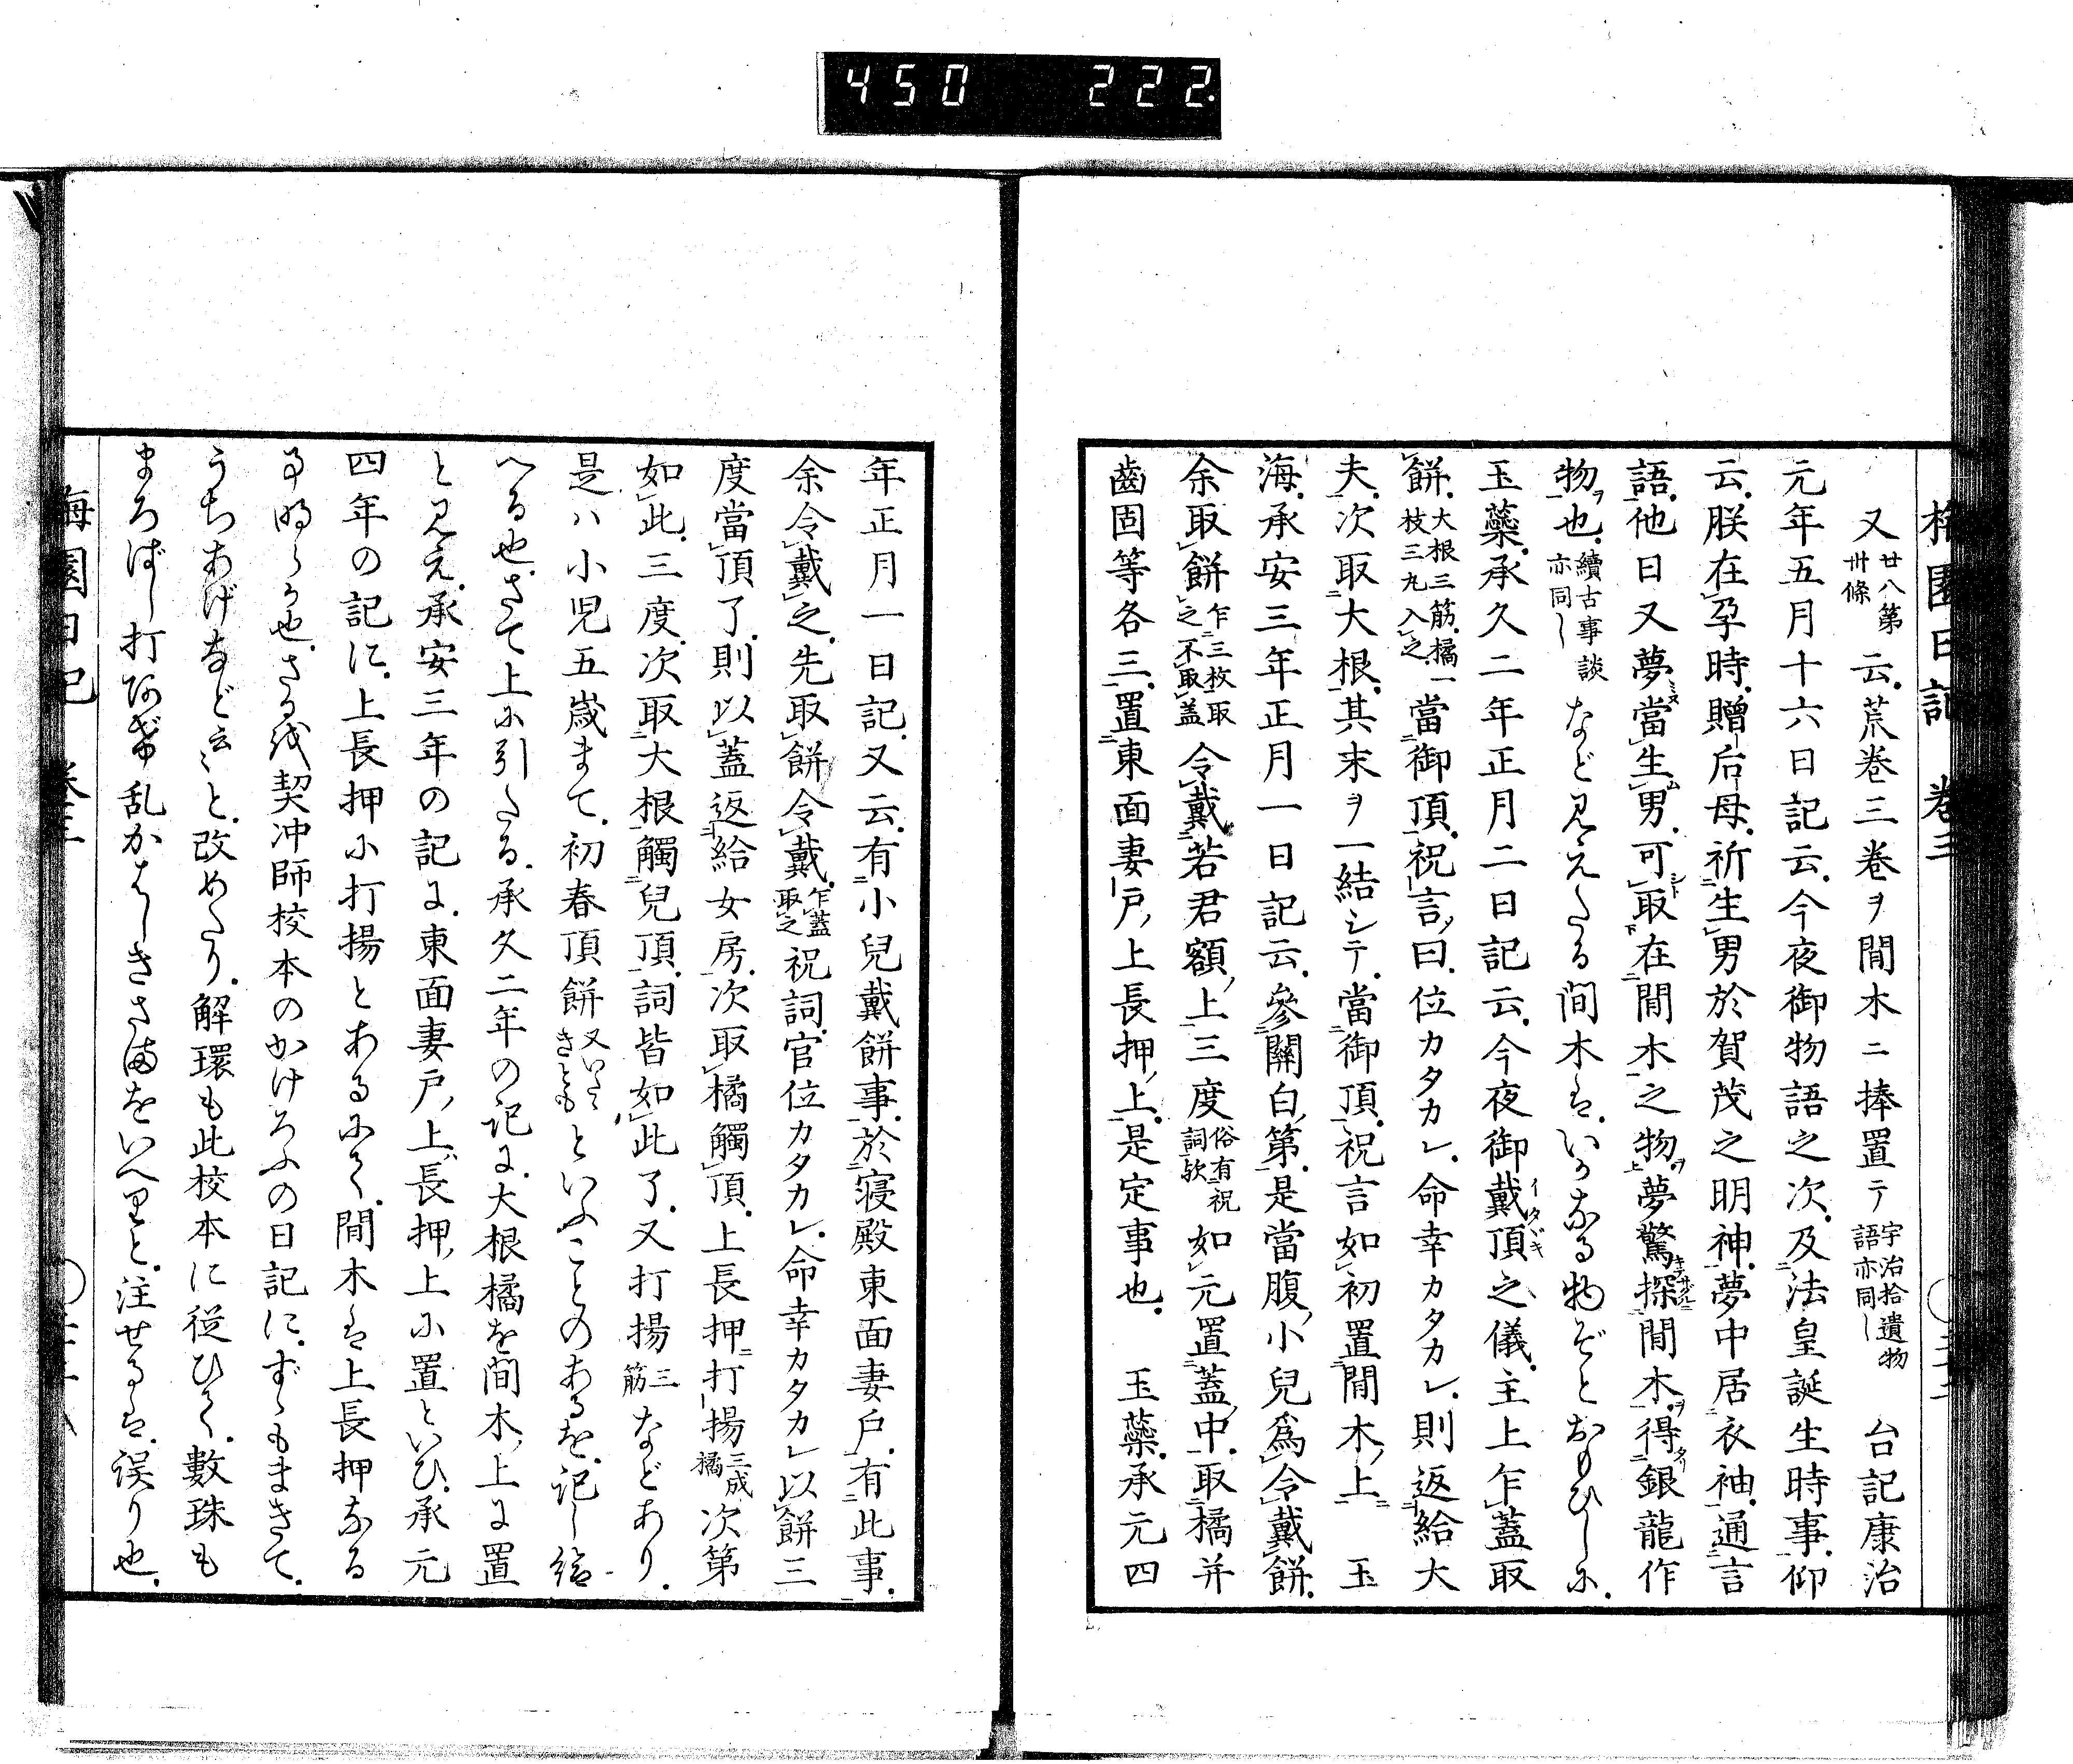 450 222
梅園日記 卷三
又廿八第卅條云荒巻三巻ヲ間木ニ捧置テ宇治拾遺物語亦同し 台記康治
元年五月十六日記云今夜御物語之次及法皇誕生時事仰
云朕在孕時贈后母祈生男於賀茂之明神夢中居衣袖通言
語他日又夢當生男可取在間木之物夢驚探間木得銀龍作
物也續古事談亦同しなど見えたる間木は、いかなる物ぞとおもひしに
玉蘂承久二年正月二日記云今夜御戴頂之儀主上乍蓋取
餅大根三筋橘一枝三九入之當御頂祝言曰位カタカレ命幸カタカレ則返給大
夫次取大根其末ヲ一結シテ當御頂祝言如初置間木上 玉
海承安三年正月一日記云參關白第是當腹小兒爲令戴餅
余取餅乍三枚取之不取蓋令戴若君額上三度俗有祝詞欤如元置蓋中取橘并
齒固等各三置東面妻戸上長押上是定事也 玉蘂承元四
年正月一日記又云有小兒戴餅事於寝殿東面妻戸有此事
余令戴之先取餅令戴乍蓋取之祝詞官位カタカレ命幸カタカレ以餅三
度當頂了則以蓋返給女房次取橘觸頂上長押打揚三成橘次第
如此三度次取大根觸兒頂詞皆如此了又打揚三筋などあり
是ハ小児五歳まて初春頂餅又いたゞきともといふことのあるを記し給
へる也さて上に引たる承久二年の記に大根橘を間木上に置
と見え承安三年の記に東面妻戸上長押上に置といひ承元
四年の記に上長押に打揚とあるにて間木は上長押なる
事明らか也さるを契沖師校本のかげろふの日記にずゞもまきて
うちあげなど云々と改めたり解環も此校本に従ひて數珠も
まろばし打阿げ乱かはしきさまをいへりと注せるは誤り也
梅園日記 卷三